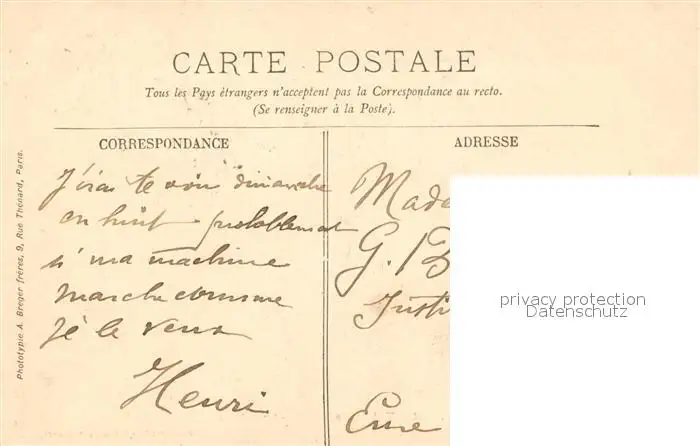 CARTE POSTALE
Tous les Pays étrangers n'acceptent pas la Correspondance au recto.
(Se renseigner à la Poste).
CORRESPONDANCE
J'irai te voir dimanche
en huit probablement
si ma machine
marche comme
je le veux
Henri
ADRESSE
Mada
G. B
Insti
Erne
Phototypie A. Breger frères, 9, Rue Thénard, Paris.
privacy protection
Datenschutz